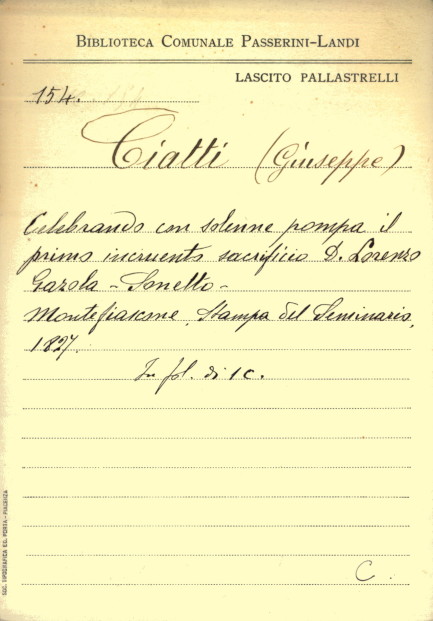 BIBLIOTECA COMUNALE PASSERINI-LANDI
LASCITO PALLASTRELLI
154.
Ciatti (Giuseppe)
Celebrando con solenne pompa il
primo incruento sacrificio D. Lorenzo
Gazola - Sonetto -
Montefiascone, Stampa del Seminario,
1827.
In fol. di 1 c.
C.
SOC. TIPOGRAFICA ED. PORTA - PIACENZA